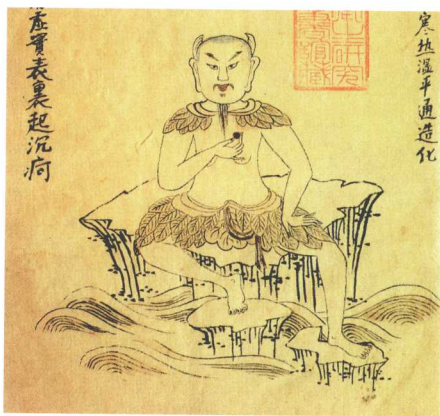 寒热温平通造化
虚實表裏起沉疴